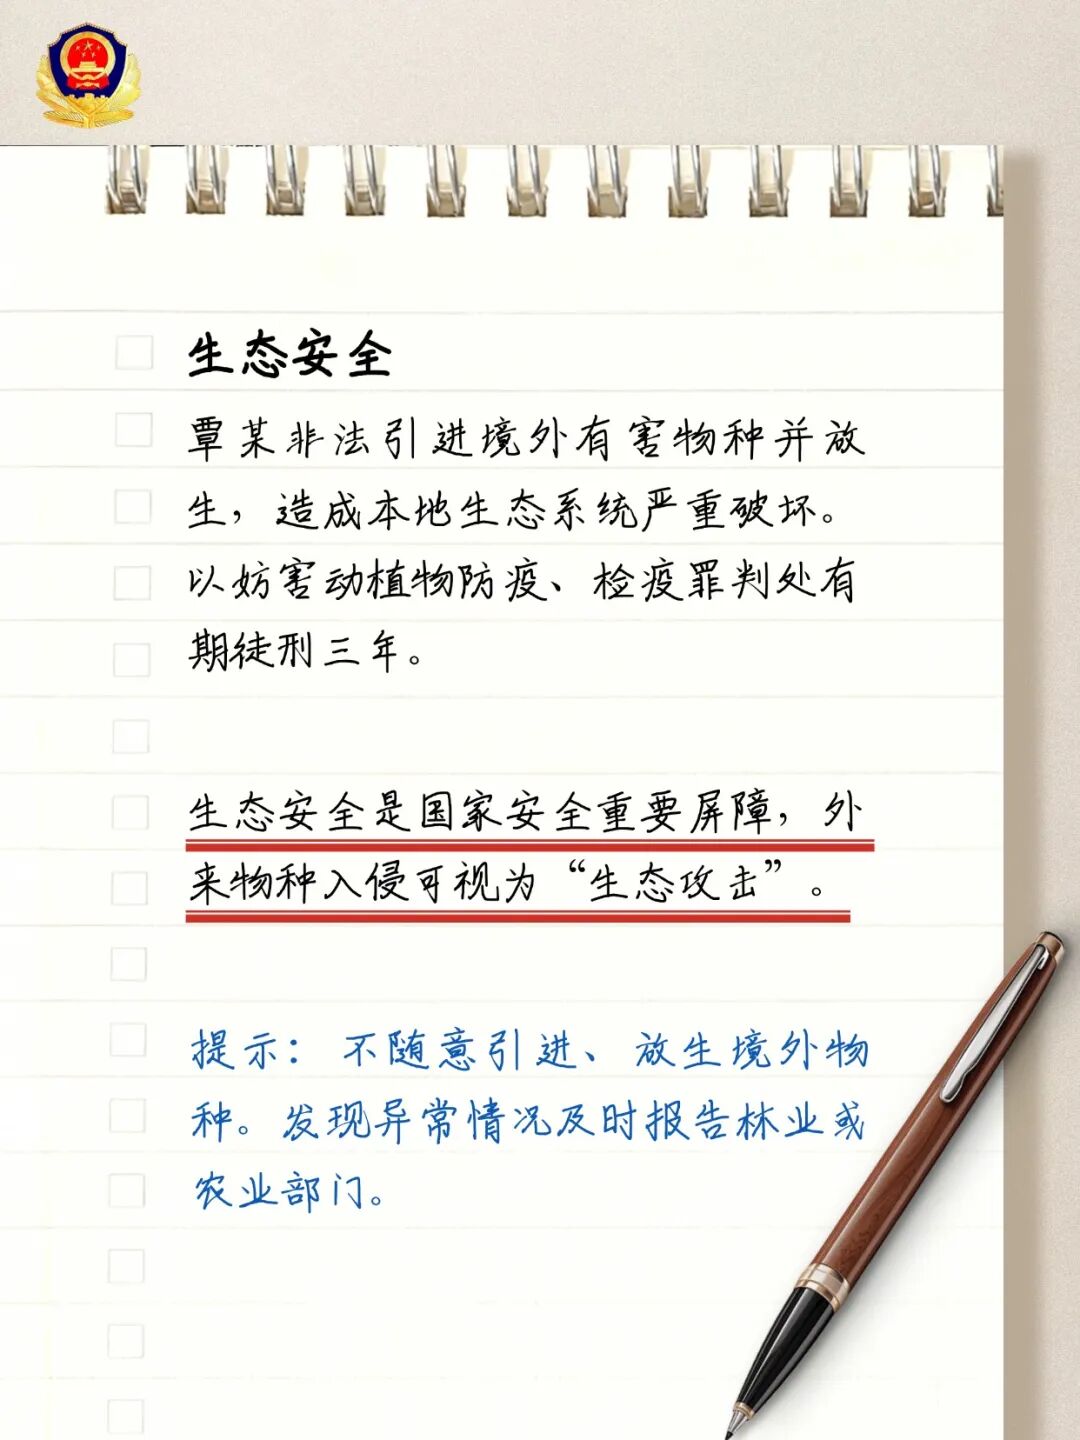 生态安全
覃某非法引进境外有害物种并放
生，造成本地生态系统严重破坏。
以妨害动植物防疫、检疫罪判处有
期徒刑三年。
生态安全是国家安全重要屏障，外
来物种入侵可视为“生态攻击”。
提示：不随意引进、放生境外物
种。发现异常情况及时报告林业或
农业部门。